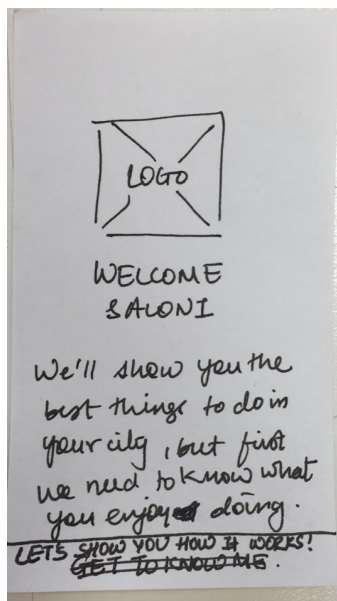 LOGO
WELCOME
SALONI
We'll show you the
best things to do in
your city, but first
we need to know what
you enjoy doing.
LET'S SHOW YOU HOW IT WORKS!
GET TO KNOW ME.